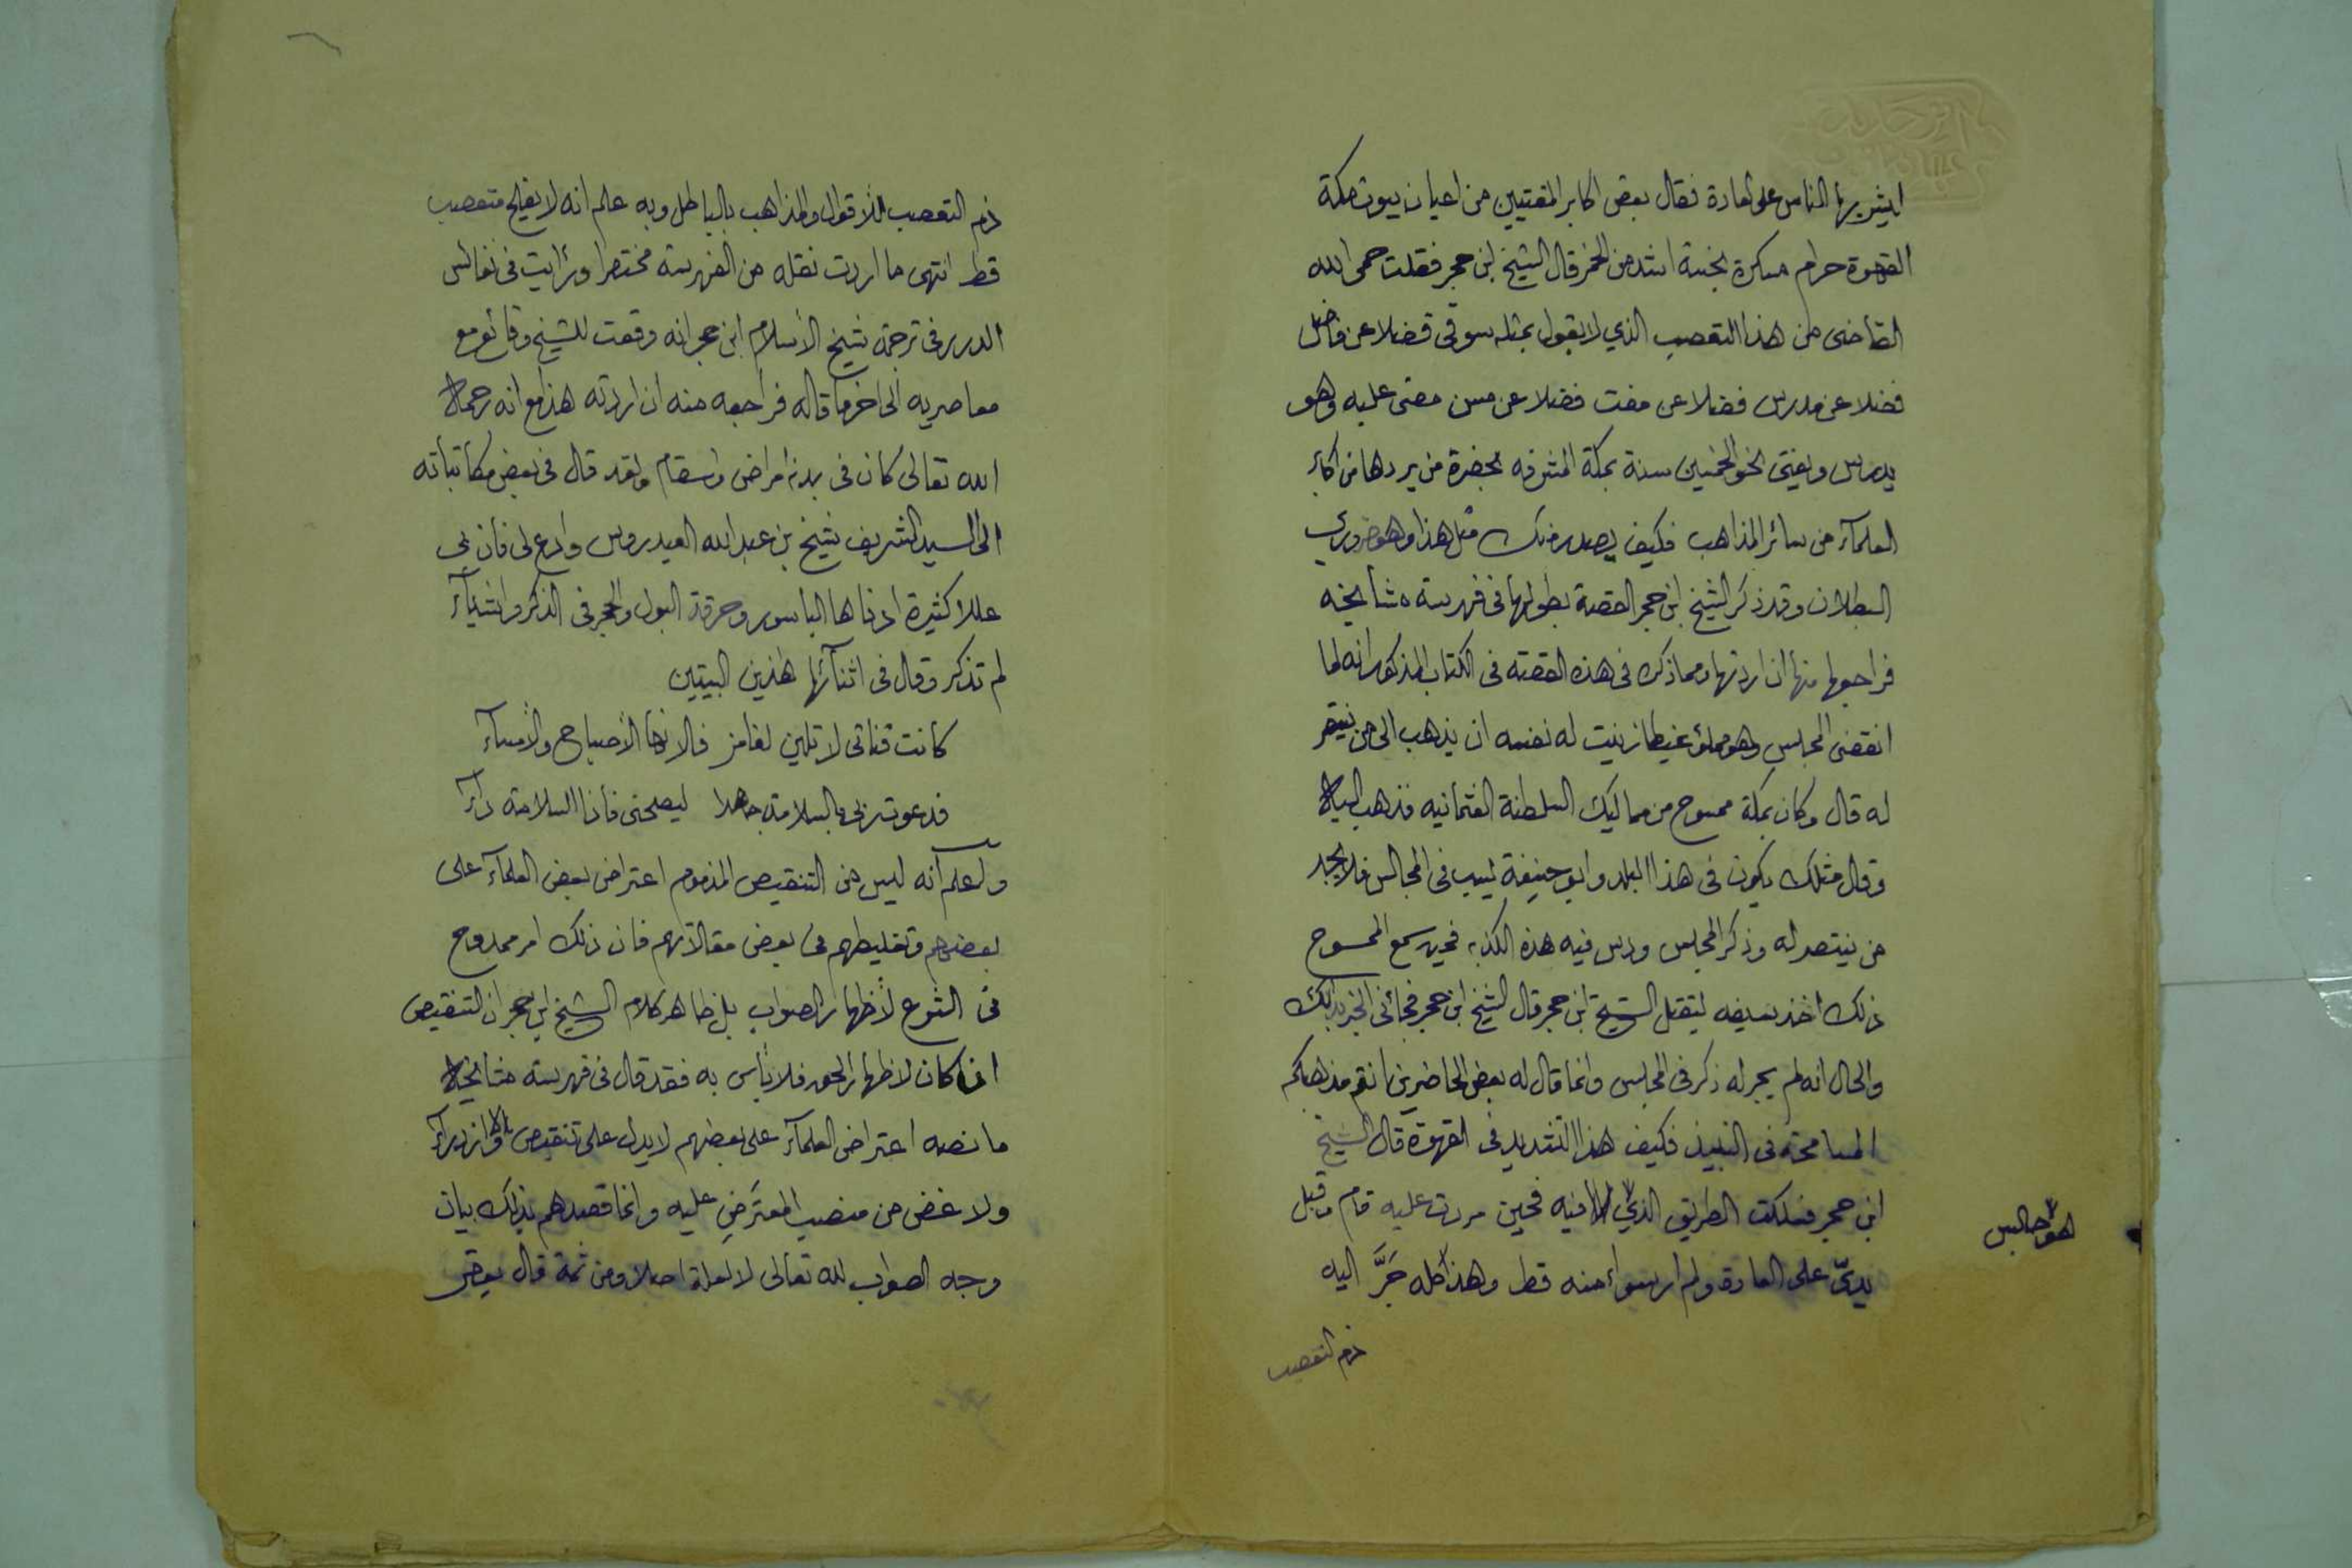 ليشربها الناس على العادة فقال بعض اكابر المفتيين من اعيان بيوت مكة
القهوة حرام مسكرة نجسة اشد من الخمر قال الشيخ ابن حجر فقلت حمى الله
القاضى من هذا التعصب الذي لا يقول بمثله سوقى فضلا عن فاضل
فضلا عن مدرس فضلا عن مفت فضلا عن مسن مضى عليه وهو
يدرس ويفتى نحو الخمسين سنة بمكة المشرفه بحضرة من يردها من اكابر
العلمآء من سائر المذاهب فكيف يصدر منك مثل هذا وهو ضروري
البطلان وقد ذكر الشيخ ابن حجر القصة بطولها فى فهرسة مشايخه
فراجعها منها ان اردتها ومما ذكره فى هذه القصة فى الكتاب المذكور انه لما
انقضى المجلس وهو مملؤ غيظا زينت له نفسه ان يذهب الى من ينتصر
له قال وكان بمكة ممسوح من مماليك السلطنة العثمانيه فذهب اليه
وقال مثلك يكون فى هذا البلد وابو حنيفة يسب فى المجالس فلا يجد
من ينتصر له وذكر المجلس ودس فيه هذه الكذبه فحين سمع الممسوح
ذلك اخذ سيفه ليقتل الشيخ ابن حجر قال الشيخ ابن حجر فجائنى الخبر بذلك
والحال انه لم يجر له ذكر فى المجلس وانما قال له بعض الحاضرين انتم مذهبكم
المسامحة فى النبيذ فكيف هذا التشديد فى القهوة قال الشيخ
ابن حجر فسلكت الطريق الذي فيه فحين مررت عليه قام وقبل
هو جالس
يدىّ على العادة ولم ار سواء منه قط وهذا كله جَرَّ اليه
ذم التعصب
ذم التعصب للاقوال والمذاهب بالباطل وبه علم انه لا يفلح متعصب
قط انتهى ما اردت نقله من الفهرسة مختصرا ورأيت فى نفائس
الدرر فى ترجمة شيخ الأسلام ابن حجر انه وقعت للشيخ وقائع مع
معاصريه الى اخر ما قاله فراجعه منه ان اردته هذا مع انه رحمه
الله تعالى كان فى بدنه امراض واسقام ولقد قال فى بعض مكاتباته
الى السيد الشريف شيخ بن عبد الله العيدروس وادع لى فان بى
عللا كثيرة ادناها الباسور وحرقة البول والحجر فى الذكر واشيآء
لم تذكر وقال فى اثنآئها هذين البيتين
كانت قناتى لا تلين لغامز فالانها الأصباح والأمسآء
فدعوت ربى بالسلامة جاهدا ليصحنى فاذا السلامة دآء
واعلم انه ليس من التنقيص المذموم اعتراض بعض العلمآء على
بعضهم وتغليطهم فى بعض مقالاتهم فان ذلك امر ممدوح
فى الشرع لأظهار الصواب بل ظاهر كلام الشيخ ابن حجر ان التنقيص
اذا كان لاظهار الحق فلا بأس به فقد قال فى فهرسة مشايخه
ما نصه اعتراض العلمآء على بعضهم لا يدل على تنقيص ولا ازدرآء
ولا غض من منصب المعترَضِ عليه وانما قصدهم بذلك بيان
وجه الصواب لله تعالى لا لعلة اصلا ومن ثمة قال بعض